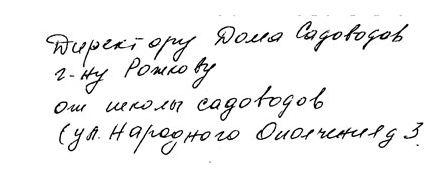 Директору Дома Садоводов
г-ну Рожкову
от школы садоводов
(ул. Народного Ополчения д 3.